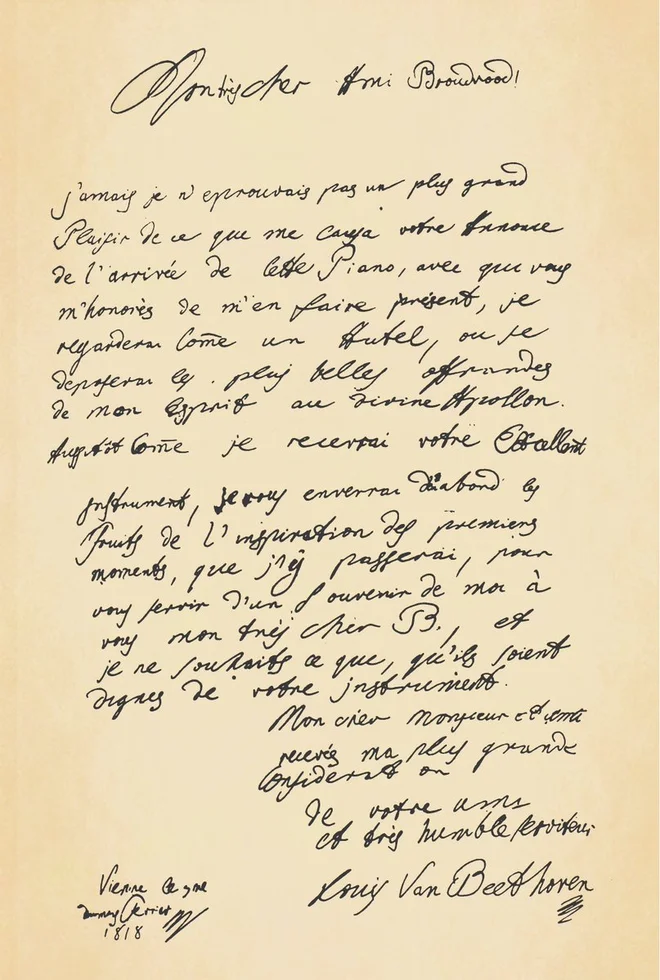 Mon très cher Ami Broudwood!
j'amais je n'eprouvais pas un plus grand
Plaisir de ce que me causa votre Annonce
de l'arrivée de Cette Piano, avec que vous
m'honorès de m'en faire présent, je
regarderai Coṁe un Autel, ou je
deposerai les plus belles offrandes
de mon Esprit au divine Apollon.
Aussitôt Coṁe je recevrai votre Excellent
jnstrument, je vous enverrai d'abord les
Fruits de l'inspiration des premiers
moments, que j'y passerai, pour
vous servir d'un Souvenir de moi à
vous mon très cher B., et
je ne souhaits ce que, qu'ils soient
dignes de votre jnstrument.
Mon cher Monsieur et ami
recevés ma plus grande
Consideration
de votre ami
et très humble serviteur
Louis Van Beethoven
Vienne le 7me
du mois Fevrier
1818